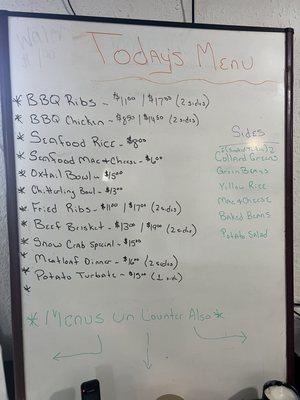 Water
Today's Menu
* BBQ Ribs - $11.00 / $17.00 (2 sides)
* BBQ Chicken - $8.50 / $14.50 (2 sides)
* Seafood Rice - $8.00
* Seafood Mac & Cheese -
* Oxtail Bowl - $15.00
* Chitterling Bowl - $13.00
* Fried Ribs - $11.00 / $17.00 (2 sides)
* Beef Brisket - $13.00 / $19.00 (2 sides)
* Snow Crab Special - $15.00
* Meatloaf Dinner - $16.00 (2 sides)
* Potato Turbate - $15.00 (1
*
Sides
Collard Greens
Green Beans
Yellow Rice
Mac & Cheese
Baked Beans
Potato Salad
* Menus on Counter Also *